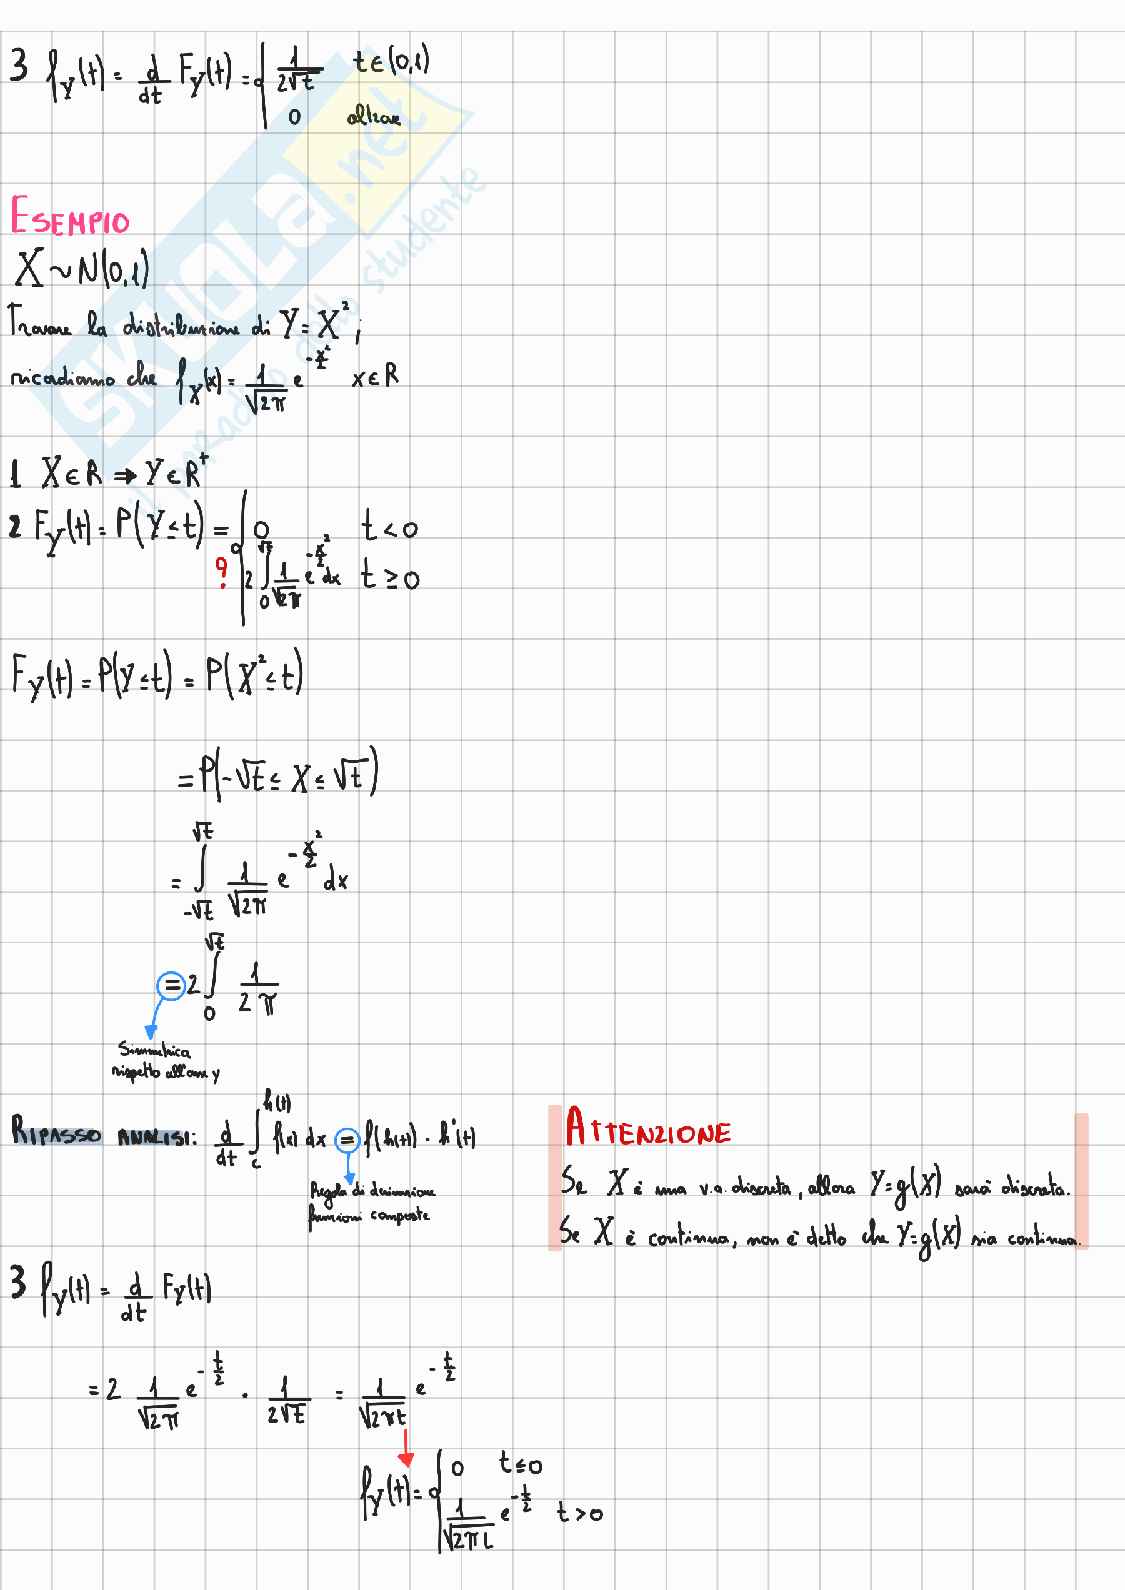 3 f_Y(t) = d/dt F_Y(t) = { 1/(2√t) t ∈ (0,1)
0 altrove
ESEMPIO
X ~ N(0,1)
Trovare la distribuzione di Y = X²;
ricordiamo che f_X(x) = 1/√(2π) e^(-x²/2) x ∈ R
1 X ∈ R ⇒ Y ∈ R⁺
2 F_Y(t) = P(Y ≤ t) = { 0 t < 0
? 2 ∫_0^√t 1/√(2π) e^(-x²/2) dx t ≥ 0
F_Y(t) = P(Y ≤ t) = P(X² ≤ t)
= P(-√t ≤ X ≤ √t)
= ∫_{-√t}^{√t} 1/√(2π) e^(-x²/2) dx
= 2 ∫_0^√t 1/(2π)
Simmetrica
rispetto all'asse y
RIPASSO ANALISI: d/dt ∫_c^{h(t)} f(x) dx = f(h(t)) · h'(t)
Regola di derivazione
funzioni composte
ATTENZIONE
Se X è una v.a. discreta, allora Y=g(X) sarà discreta.
Se X è continua, non è detto che Y=g(X) sia continua.
3 f_Y(t) = d/dt F_Y(t)
= 2 1/√(2π) e^(-t/2) · 1/(2√t) = 1/√(2πt) e^(-t/2)
f_Y(t) = { 0 t ≤ 0
1/√(2πt) e^(-t/2) t > 0
SKUOLA.net
il paradiso dello studente